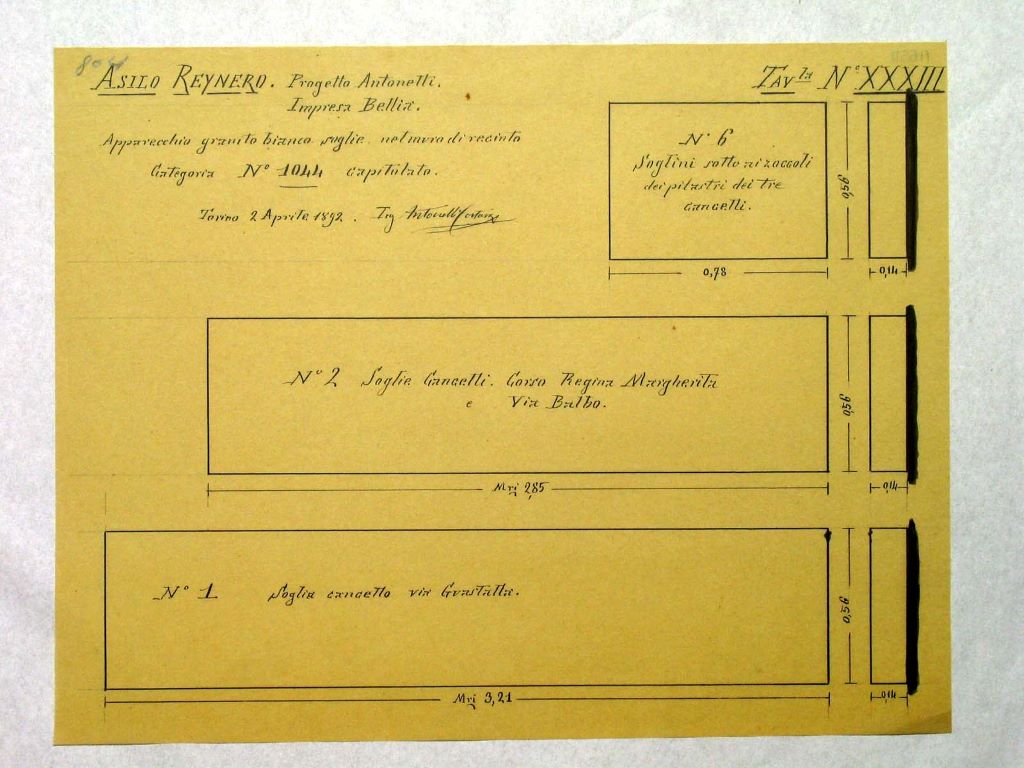 ASILO REYNERO. Progetto Antonelli.
Impresa Bellia.
Apparecchio granito bianco soglie nel muro di recinto
Categoria Nº 1044 capitolato.
Torino 2 Aprile 1892. Ing Antonelli Costanzo
TAVla Nº XXXIII
Nº 6
Soglini sotto ai zoccoli
dei pilastri dei tre
cancelli.
0,56
0,78
0,14
Nº 2 Soglie Cancelli. Corso Regina Margherita
e Via Balbo.
0,56
Mri 2,85
0,14
Nº 1 Soglia cancello via Guastalla.
0,56
Mri 3,21
0,14